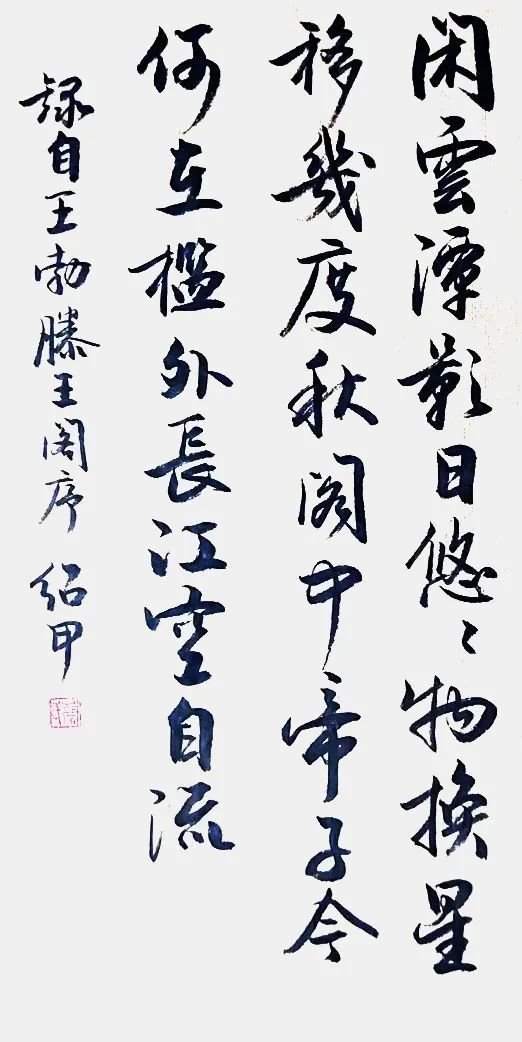 閑雲潭影日悠〻物換星
移幾度秋閣中帝子今
何在檻外長江空自流
錄自王勃滕王阁序 绍甲